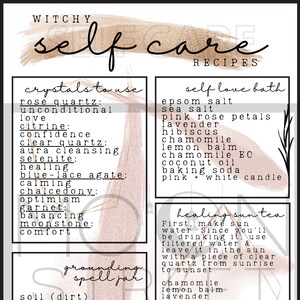 WITCHY
self care
RECIPES
crystals to use
rose quartz:
unconditional
love
citrine:
confidence
clear quartz:
aura cleansing
selenite:
healing
blue-lace agate:
calming
chalcedony:
optimism
garnet:
balancing
moonstone:
comfort
self love bath
epsom salt
sea salt
pink rose petals
lavender
hibiscus
chamomile
lemon balm
chamomile EO
coconut oil
baking soda
pink + white candle
healing sun tea
First, make sun
water. Since you'll
be drinking it, use
filtered water &
leave it in the sun
with a piece of clear
quartz from sunrise
to sunset.
chamomile
lemon balm
lavender
grounding
spell jar
soil (dirt)